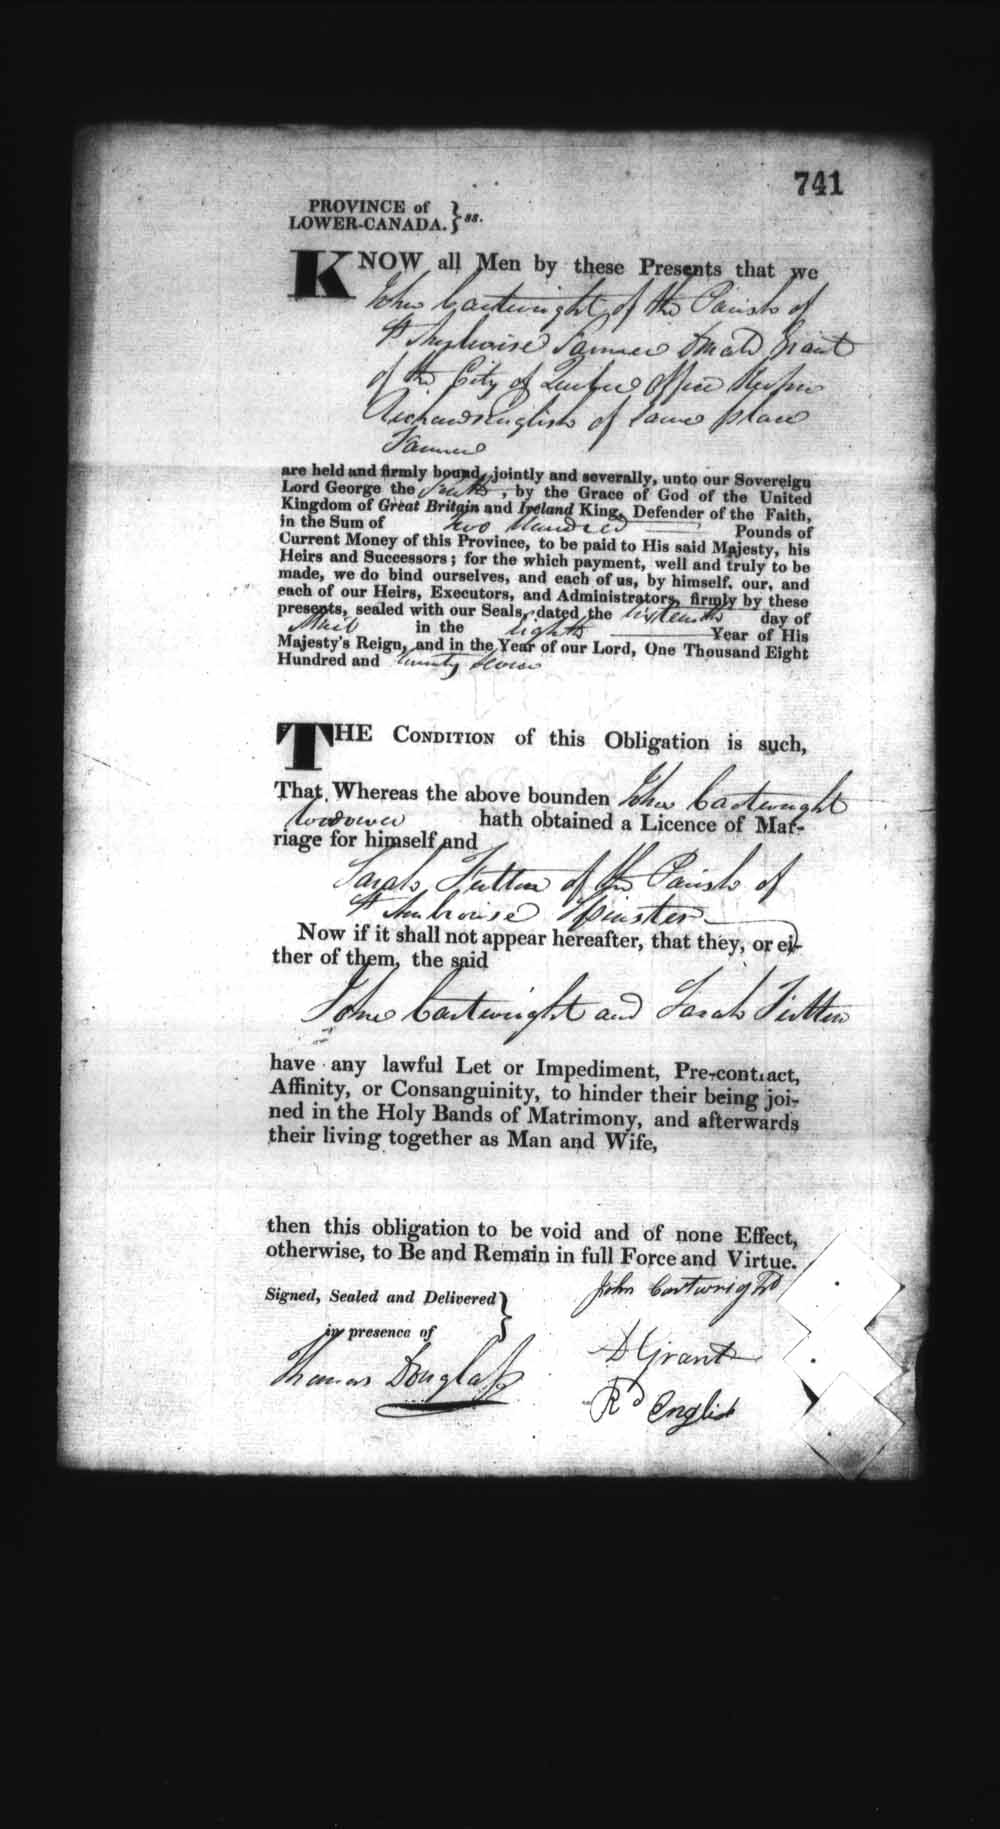 741
PROVINCE of
LOWER-CANADA. } ss.
KNOW all Men by these Presents that we
John Cartwright of the Parish of
St Ambroise Farmer Donald Grant
of the City of Quebec Office Keeper
Richard English of same place
Farmer
are held and firmly bound, jointly and severally, unto our Sovereign
Lord George the Fourth, by the Grace of God of the United
Kingdom of Great Britain and Ireland King, Defender of the Faith,
in the Sum of Two Hundred Pounds of
Current Money of this Province, to be paid to His said Majesty, his
Heirs and Successors; for the which payment, well and truly to be
made, we do bind ourselves, and each of us, by himself, our, and
each of our Heirs, Executors, and Administrators, firmly by these
presents, sealed with our Seals, dated the sixteenth day of
April in the eighth Year of His
Majesty's Reign, and in the Year of our Lord, One Thousand Eight
Hundred and twenty seven
THE CONDITION of this Obligation is such,
That Whereas the above bounden John Cartwright
widower hath obtained a Licence of Mar-
riage for himself and
Sarah of the Parish of
St Ambroise Spinster
Now if it shall not appear hereafter, that they, or ei-
ther of them, the said
John Cartwright and Sarah
have any lawful Let or Impediment, Pre-contract,
Affinity, or Consanguinity, to hinder their being joi-
ned in the Holy Bands of Matrimony, and afterwards
their living together as Man and Wife,
then this obligation to be void and of none Effect,
otherwise, to Be and Remain in full Force and Virtue.
John Cartwright
Signed, Sealed and Delivered }
in presence of
D Grant
Thomas Douglass
Rd English